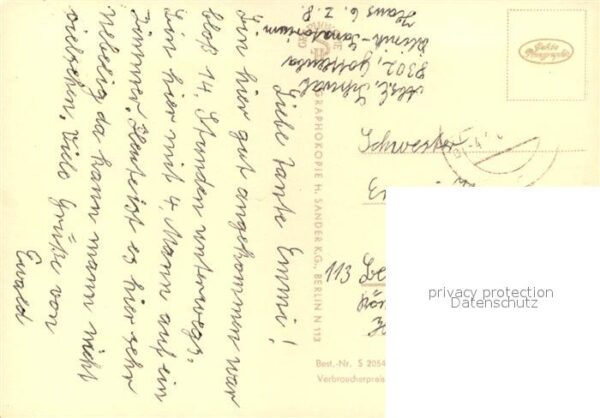 Abs. E. Schwab
8302, Gottleuba
Klinik-Sanatorium
Haus 6. Z. 8.
Liebe Tante Emmi!
Bin hier gut angekommen war
bloß 14 Stunden unterwegs.
Bin hier mit 4 Mann auf ein
Zimmer. Heute ist es hier sehr
Nebelig da kann mann nicht
viel sehen. Viele Grüße von
Ewald
GRAPHOKOPIE H. SANDER K.G., BERLIN N 113
Best.-Nr. S 2054
Verbraucherpreis
Echte
Photographie
Schwester
113
privacy protection
Datenschutz